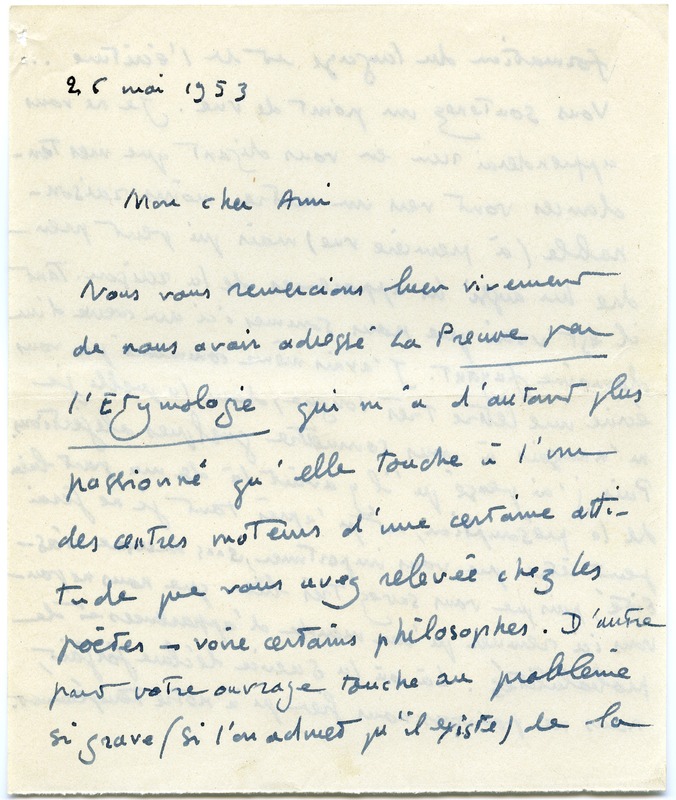 26 mai 1953
Mon cher Ami
Nous vous remercions bien vivement
de nous avoir adressé La Preuve par
l'Etymologie qui m'a d'autant plus
passionné qu'elle touche à l'un
des centres moteurs d'une certaine atti-
tude que vous avez relevée chez les
poètes – voire certains philosophes. D'autre
part votre ouvrage touche au problème
si grave (si l'on admet qu'il existe) de la